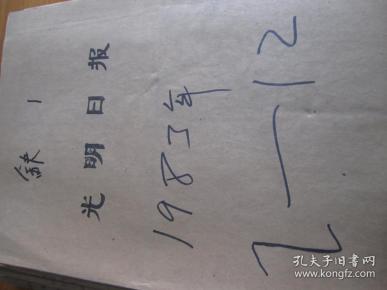 缺 1
光明日报
1983年
2—12
孔夫子旧书网
www.kongfz.com